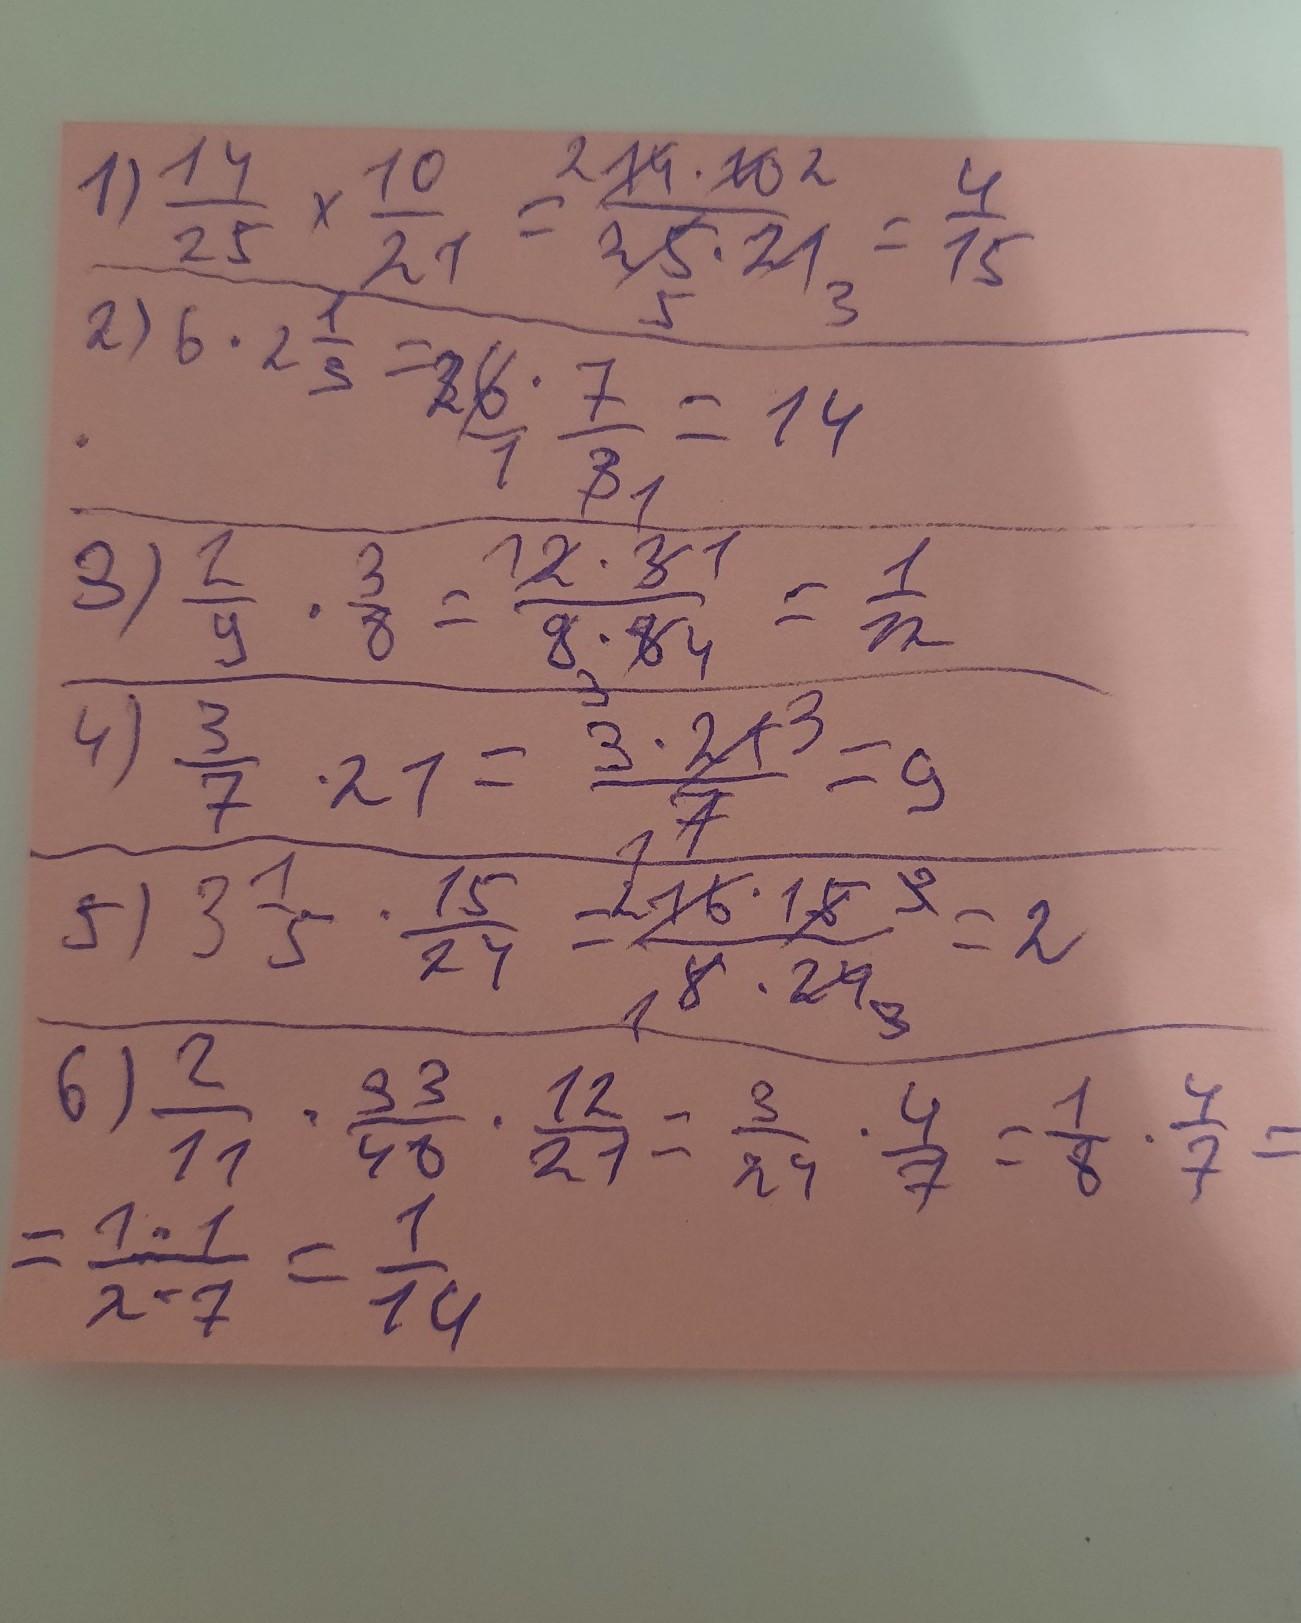 1) 14/25 × 10/21 = 2 14·10 2 / 25·21 5 3 = 4/15
2) 6 · 2 1/3 = 2 6/1 · 7/3 1 = 14
3) 2/9 · 3/8 = 1 2·3 1 / 9·8 4 3 = 1/12
4) 3/7 · 21 = 3·21 3 / 7 1 = 9
5) 3 1/5 · 15/24 = 2 16·15 3 / 5·24 1 3 = 2
6) 2/11 · 33/48 · 12/21 = 3/24 · 4/7 = 1/8 · 4/7 =
= 1·1/2·7 = 1/14